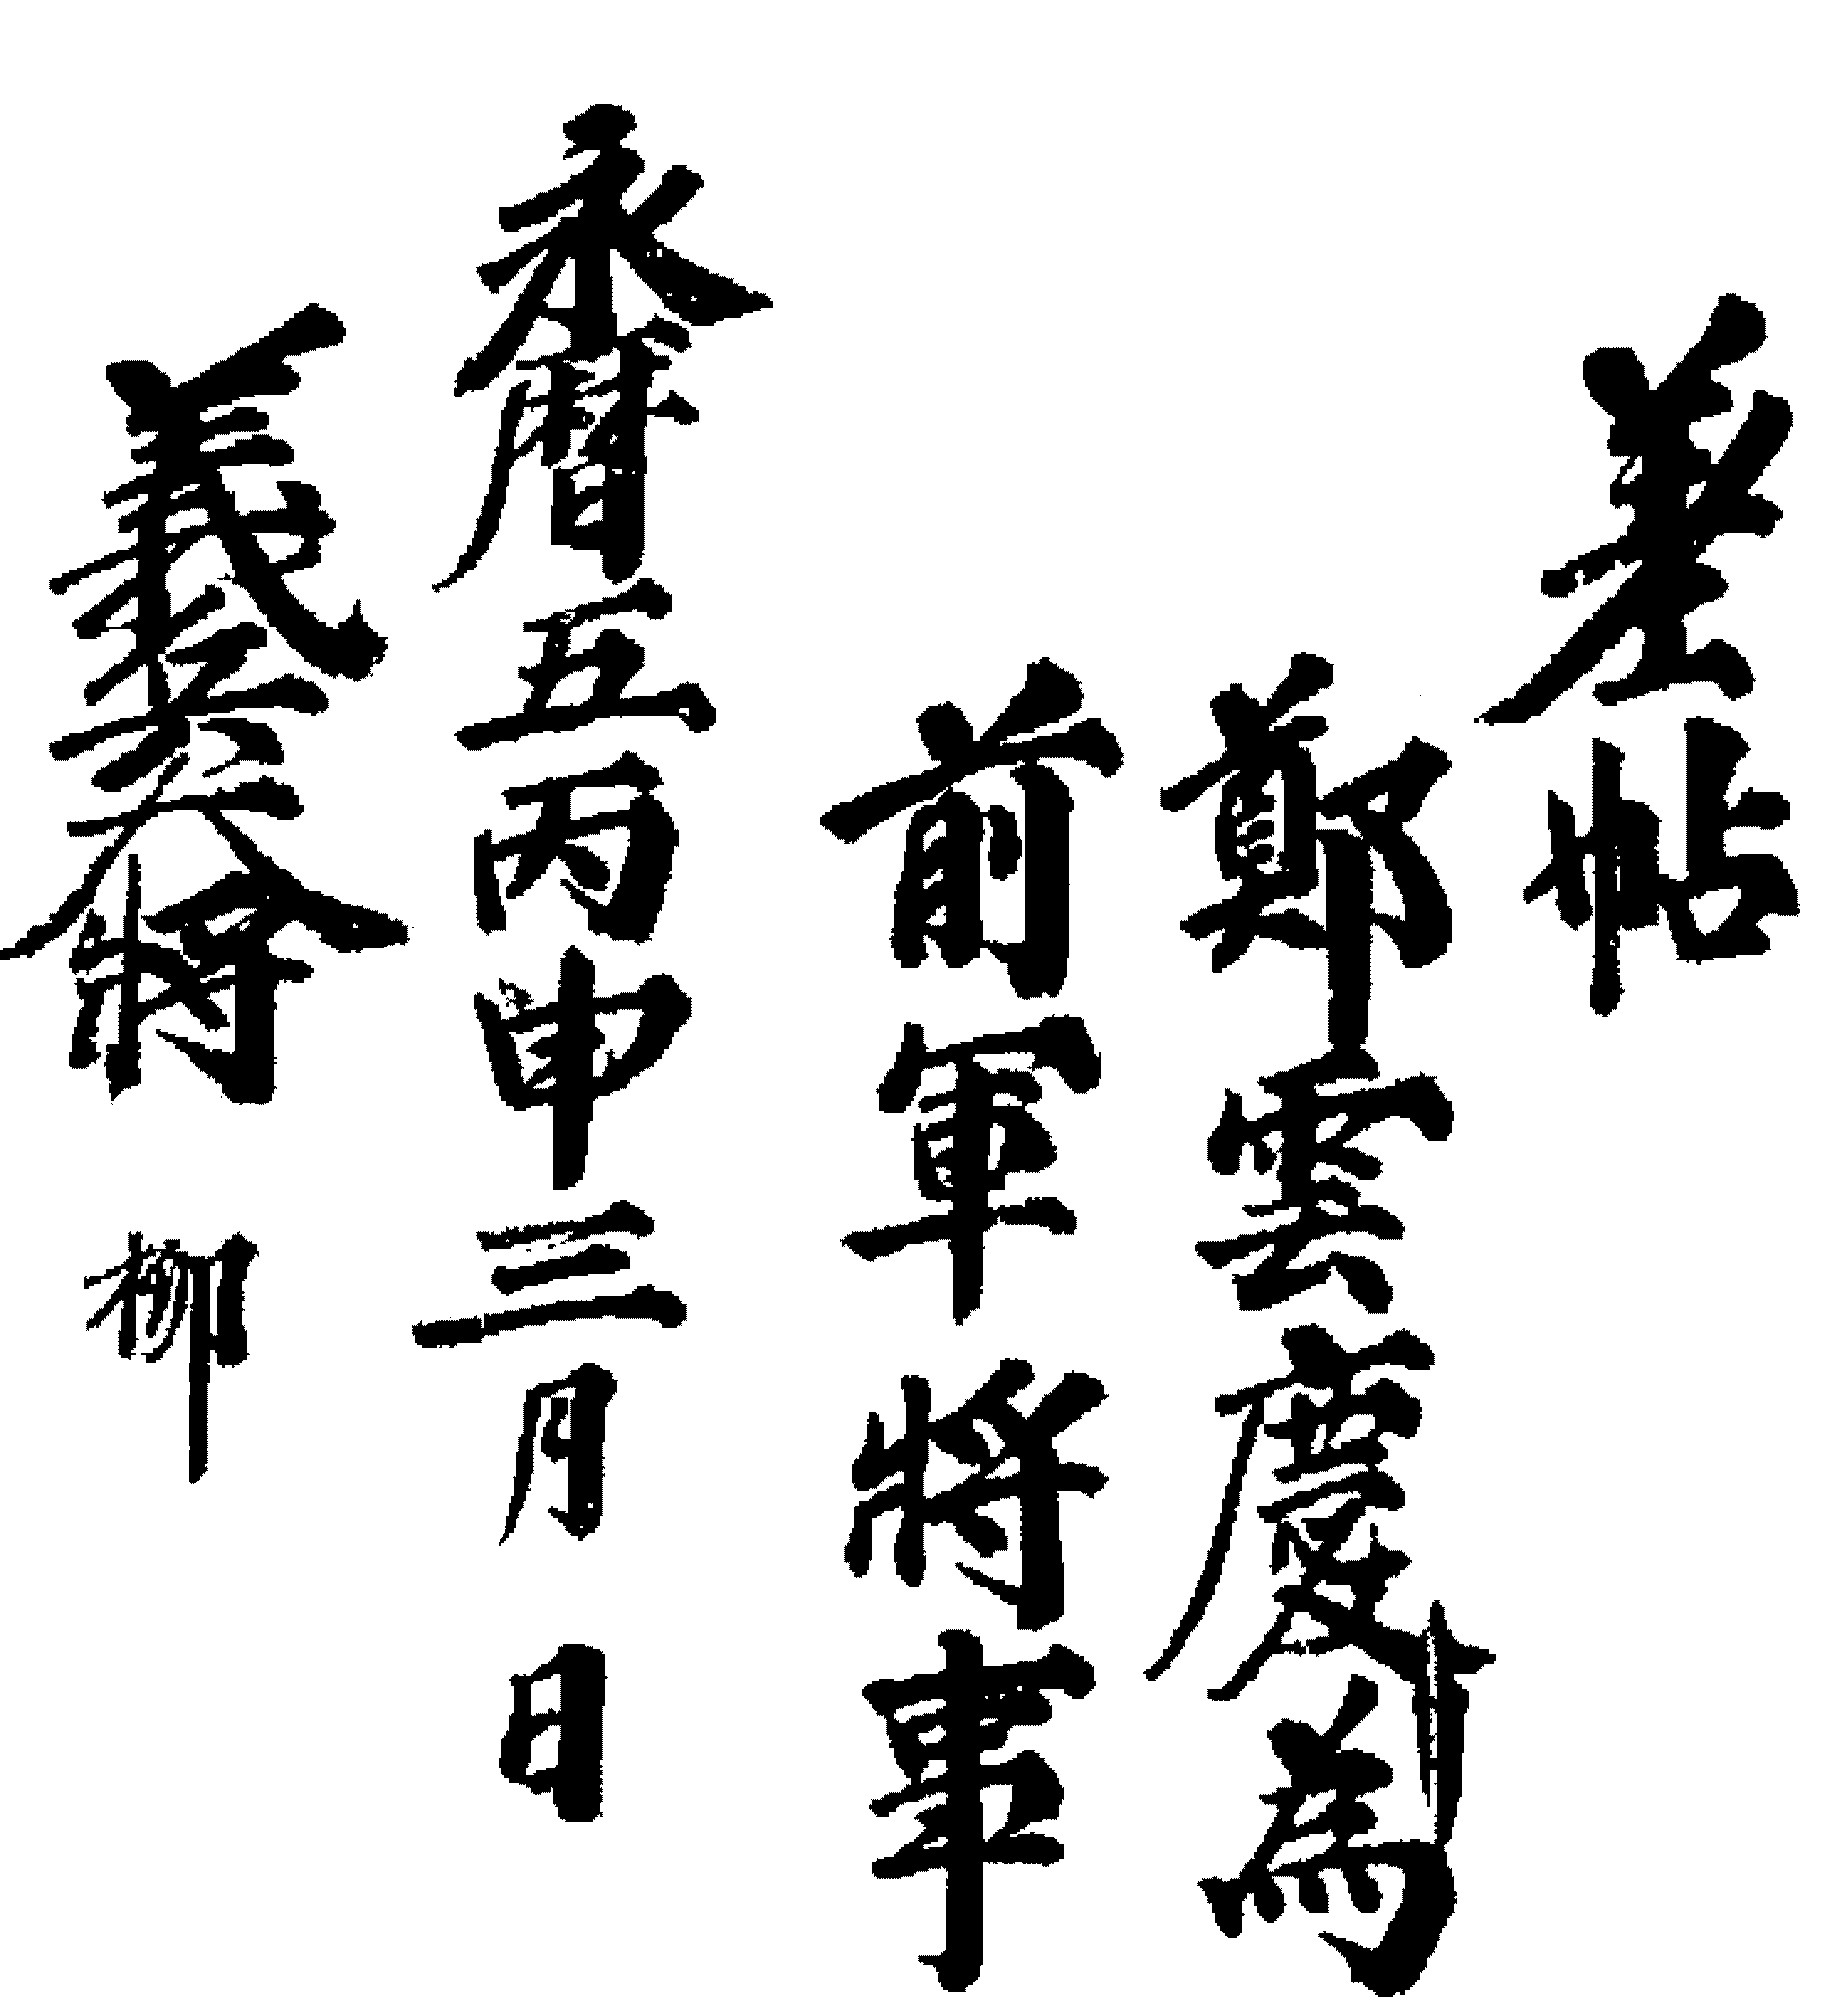 差帖
鄭雲慶為
前軍將事
永曆五丙申三月 日
義兵大將 柳